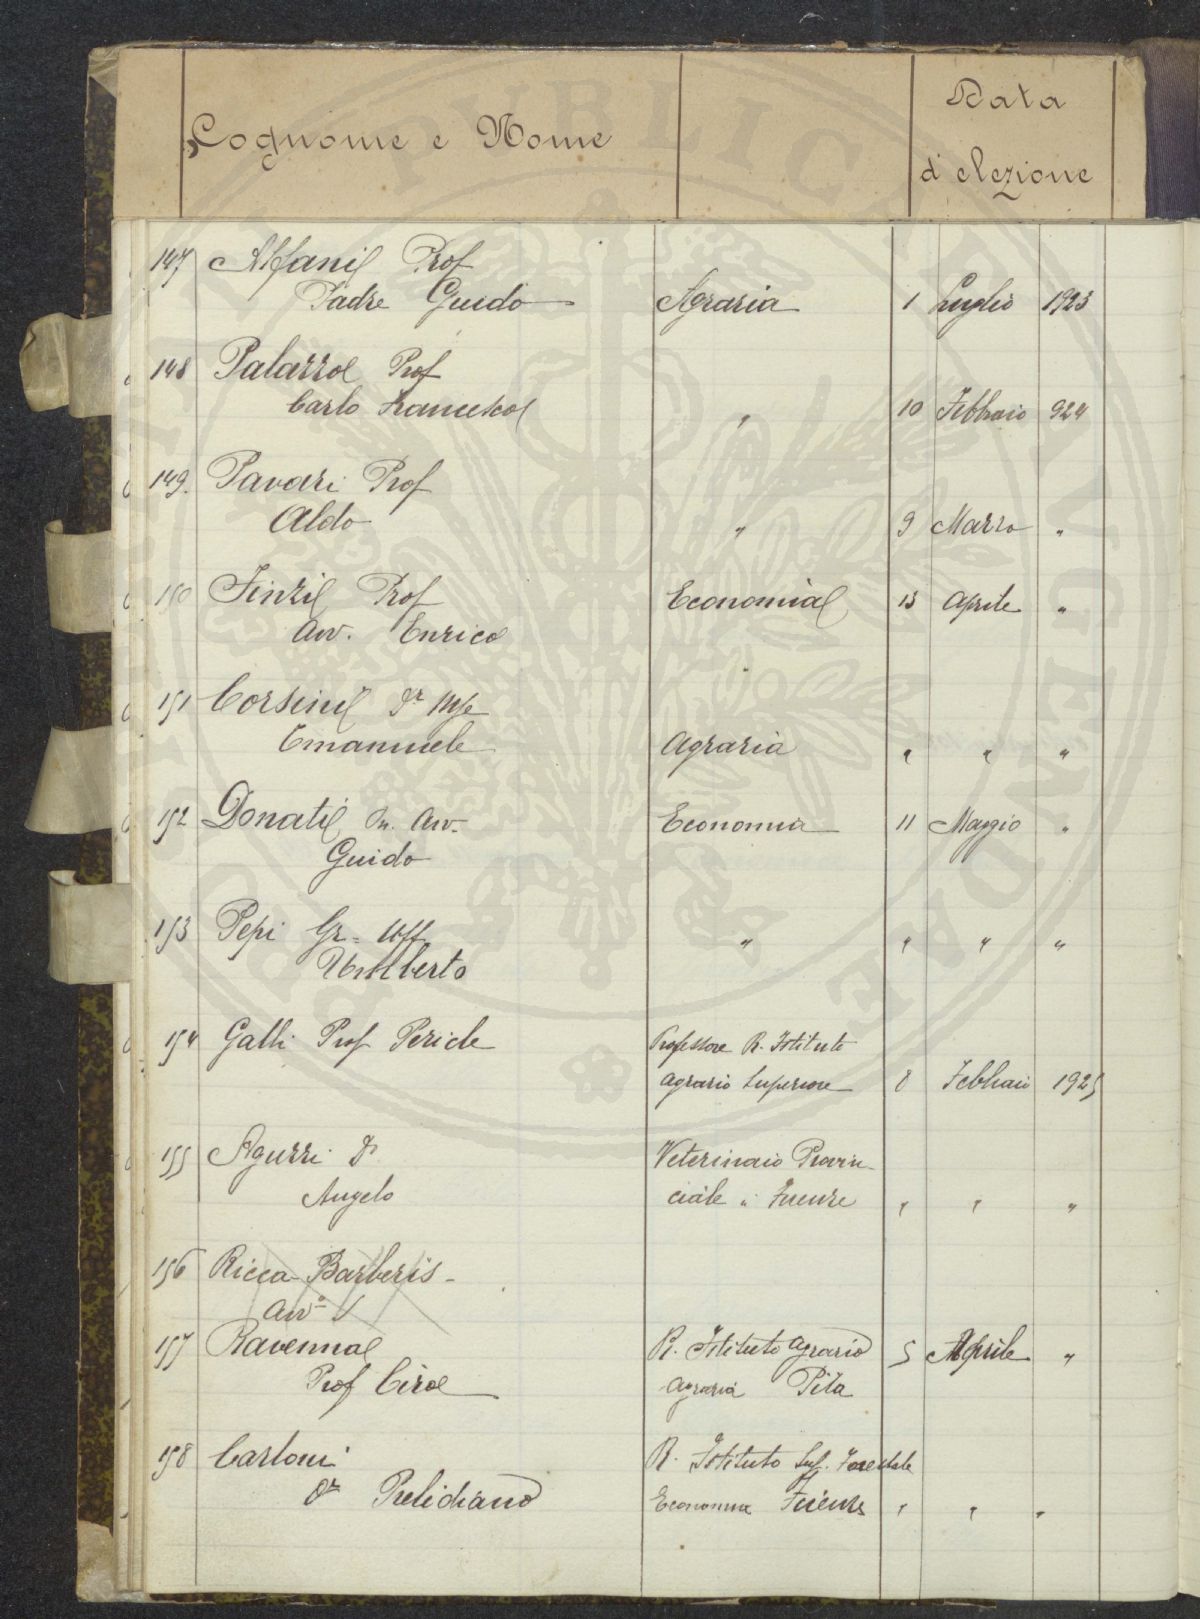 Cognome e Nome
Data
d'elezione
147 Alfani Prof
Padre Guido Agraria 1 Luglio 1923
148 Palazzo Prof
Carlo Francesco " 10 Febbraio 924
149. Pavari Prof
Aldo " 9 Marzo "
150 Finzi Prof Economia 13 Aprile "
Avv. Enrico
151 Corsini Dr Mse
Emanuele Agraria " " "
152 Donati On. Avv. Economia 11 Maggio "
Guido
153 Pepi Gr. Uff. " " " "
Umberto
154 Galli Prof Pericle Professore R. Istituto
Agrario Superiore 8 Febbraio 1925
155 Agurzi Dr Veterinario Provin-
Angelo ciale " Firenze " " "
156 Ricca-Barberis-
Avv°
157 Ravenna R. Istituto Agrario 5 Aprile "
Prof Ciro Agraria Pisa
158 Carloni R. Istituto Sup. Forestale
Dr Economia Firenze " " "
PUBLICAE